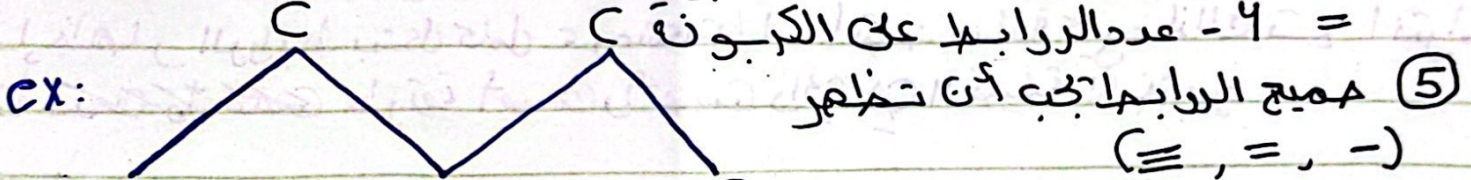 = 4 - عدد الروابط على الكربونة
⑤ جميع الروابط تجب أن تظهر
(- , = , ≡)
ex:
C C